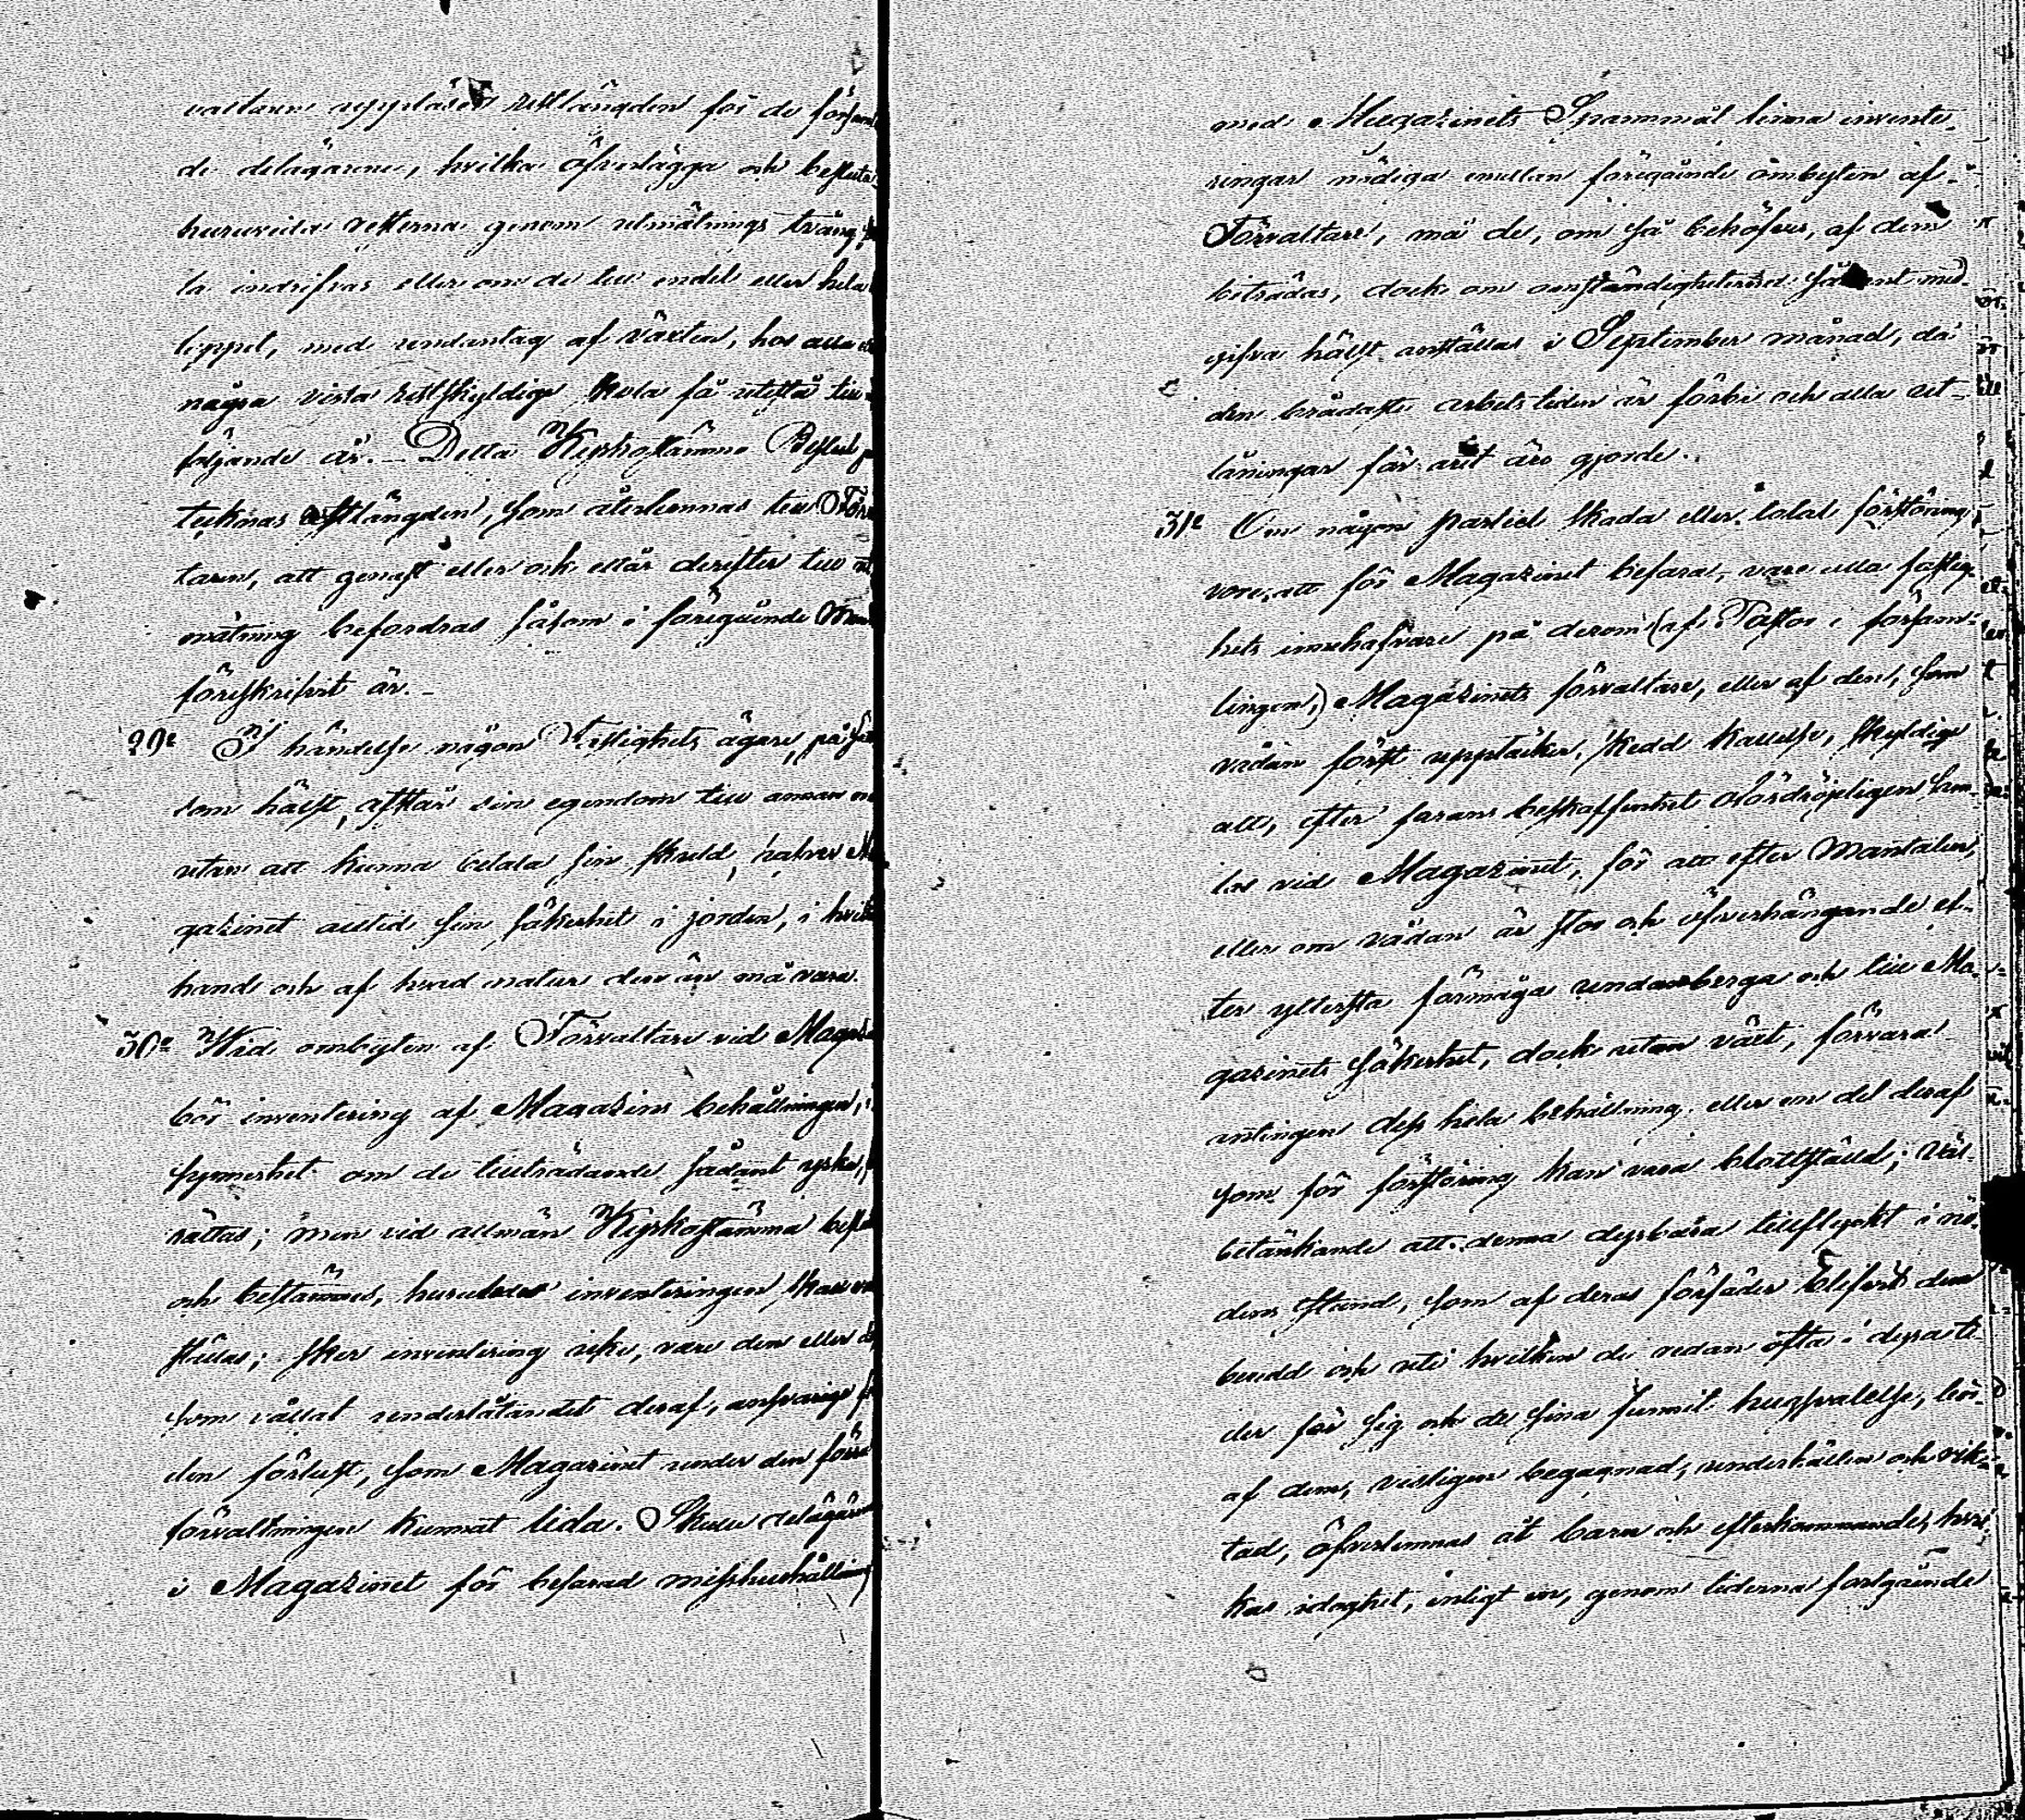 valtaren uppläser restlängden för de församla
de delägarne, hvilka öfverlägga och besluta
huruvida resterna genom utmätnings tvång ska
la indrifvas eller om de till endel eller hela
loppet, med undantag af växten, hos alla el
några vissa restskyldige skola få utestå till
följande år. Detta Kyrkostämmo Beslut
tecknas å restlängden, som återlemnas till Förval
taren, att genast eller ock ett år derefter till ut
mätning befordras såsom i föregående Mom
föreskrifvit är.
29e I händelse någon Fastighets ägare, på sätt
som hälst, afstår sin egendom till annan
utan att kunna betala sin skuld, hafver Ma
gazinet alltid sin säkerhet i jorden, i hvars
hand och af hvad natur den än må vara.
30e Wid ombyten af Förvaltare vid Magaz
bör inventering af Magazins behållningen, i
synnerhet om de tillträdande sådant yrka,
rättas; men vid allmän Kyrkostämma beslu
och bestämmes, huruledes inventeringen skall
ställas; sker inventering icke, vare den eller de
som vållat underlåtandet deraf, ansvarige f
den förlust, som Magazinet under den förra
förvaltningen kunnat lida. Skulle delägare
i Magazinet för befarad misshushållning
med Magazinets Spannmål finna invente-
ringar nödiga emellan föregående ombyten af
Förvaltare, må de, om så behöfves, af dem
beträdas, dock om omständigheterne sådant med
gifva hälst anställas i September månad, då
den brådaste arbetstiden är förbi och alla ut-
låningar för året äro gjorde.
31e Om någon partiel skada eller total förstöring
vore att för Magazinet befara, vare alla fastig-
hets innehafvare på derom (af Pastor i försam-
lingen,) Magazinets förvaltare, eller af den, som
vådan först upptäcker, skedd kallelse, skyldige
att, efter farans beskaffenhet ofördröjeligen sam-
las vid Magazinet, för att efter Mantalen,
eller om vådan är stor och öfverhängande ef-
ter yttersta förmåga undanberga och till Ma-
gazinets säkerhet, dock utan växt, förvara
antingen dess hela behållning eller en del deraf
som för förstöring kan vara blottställd; väl
betänkande att denna dyrbara tillflykt i nö-
dens stund, som af deras förfäder blifvit dem
beredd och uti hvilken de redan ofta i dyra ti-
der för sig och de sina funnit hugsvalelse, bör
af dem, visligen begagnad, underhållen och rik-
tad, öfverlemnas åt barn och efterkommande, hvil
kas idoghet, enligt en, genom tiderna fortgående